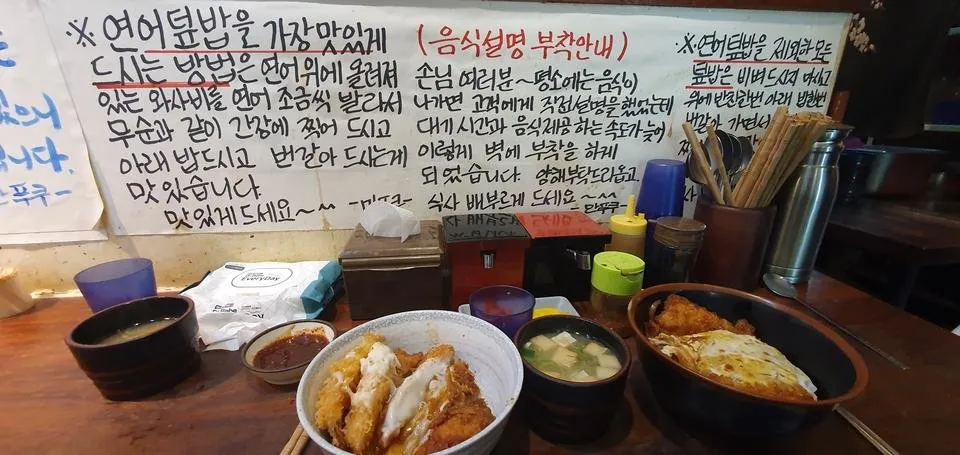 ※ 연어덮밥을 가장 맛있게
드시는 방법은 연어 위에 올려져
있는 와사비를 연어 조금씩 발라서
무순과 같이 간장에 찍어 드시고
아래 밥드시고 번갈아 드시는게
맛있습니다.
맛있게 드세요~
(음식설명 부착안내)
손님 여러분~ 평소에는 음식이
나가면 고객에게 직접설명을 했었는데
대기시간과 음식제공하는 속도가 늦어
이렇게 벽에 부착을 하게
되었습니다. 양해부탁드리옵고
식사 배부르게 드세요~
-만푸쿠-
※ 연어덮밥을 제외한 모든
덮밥은 비벼 드시지 마시고
위에 반찬한번 아래 밥한번
번갈아 가면서
EveryDay